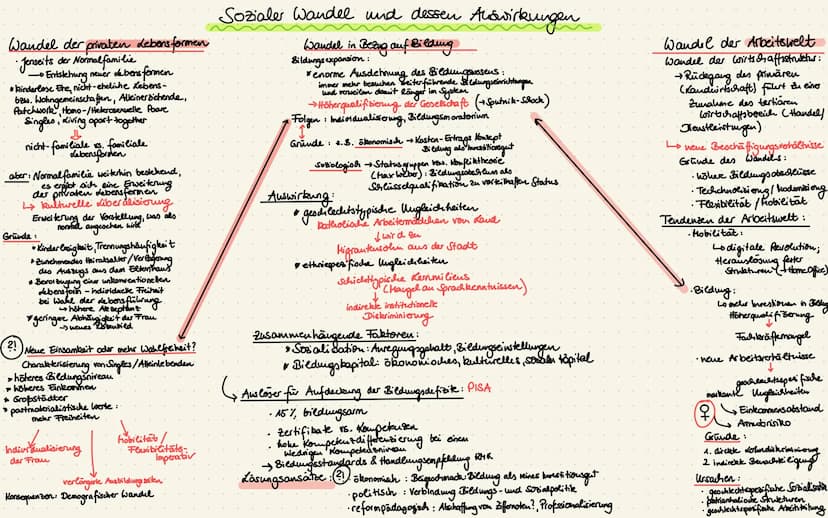 Sozialer Wandel und dessen Auswirkungen
Wandel der privaten Lebensformen
· Jenseits der Normalfamilie
→ Entstehung neuer Lebensformen
* kinderlose Ehe, nicht-eheliche Lebens-
bzw. Wohngemeinschaften, Alleinerziehende,
Patchwork, Homo-/Heterosexuelle Paare
Singles, Living apart together
nicht-familiale vs. familiale
Lebensformen
aber: Normalfamilie weiterhin bestehend,
es ergibt sich eine Erweiterung
der privaten Lebensformen
↳ kulturelle Liberalisierung
Erweiterung der Vorstellung, was als
normal angesehen wird
Gründe:
* Kinderlosigkeit, Trennungshäufigkeit
* Zunehmendes Heiratsalter/
des Auszugs aus dem Elternhaus
* Bevorzugung einer unkonventionellen
Lebensform - individuelle Freiheit
bei Wahl der Lebensführung
→ höhere Akzeptanz
* geringere Abhängigkeit der Frau
→ neues
?! Neue Einsamkeit oder mehr Wahlfreiheit?
Charakterisierung von Singles/Alleinlebenden
* höheres Bildungsniveau
* höheres Einkommen
* Großstädter
* postmaterialistische Werte:
mehr Freiheiten
Individualisierung
der Frau
verlängerte Ausbildungszeiten
Mobilität/
Flexibilitäts-
imperativ
Konsequenzen: Demografischer Wandel
Wandel in Bezug auf Bildung
Bildungsexpansion:
* enorme Ausdehnung des Bildungswesens:
immer mehr besuchen weiterführende Bildungseinrichtungen
und verweilen damit länger im System
→ Höherqualifizierung der Gesellschaft (→ Sputnik-Schock)
Folgen: Individualisierung, Bildungsmoratorium
Gründe: z.B. ökonomisch → Kosten-Ertrags Konzept
Bildung als Investitionsgut
soziologisch → Statusgruppen bzw. Konflikttheorie
(Max Weber): Bildungsabschluss als
Schlüsselqualifikation zu vorteilhaften Status
Auswirkung:
* geschlechtstypische Ungleichheiten
Katholische Arbeitermädchen vom Land
↓ wird zu
Migrantensohn aus der Stadt
* ethniespezifische Ungleichheiten
Schichttypische Lernmilieus
(Mangel an Sprachkenntnissen)
indirekte institutionelle
Diskriminierung
Zusammenhängende Faktoren:
* Sozialisation: Anregungsgehalt, Bildungseinstellungen
* Bildungskapital: ökonomisches, kulturelles, soziales Kapital
Auslöser für Aufdeckung der Bildungsdefizite: PISA
· 15% bildungsarm
· Zertifikate vs. Kompetenzen
· hohe Kompetenzdifferenzierung bei einem
niedrigen Kompetenzniveau
→ Bildungsstandards & Handlungsempfehlung KMK
Lösungsansätze: ?! · ökonomisch: Bildung als reines Investitionsgut
· politisch: Verbindung Bildungs- und Sozialpolitik
· reformpädagogisch: Abschaffung von Ziffernoten?, Professionalisierung
Wandel der Arbeitswelt
Wandel der Wirtschaftsstruktur:
→ Rückgang des primären
(Landwirtschaft) führt zu einer
Zunahme des tertiären
Wirtschaftsbereich (Handel/
Dienstleistungen)
→ neue Beschäftigungsverhältnisse
Gründe des Wandels:
· höhere Bildungsabschlüsse
· Technologisierung/Modernisierung
· Flexibilität/Mobilität
Tendenzen der Arbeitswelt:
· Mobilität:
↳ digitale Revolution;
Herauslösung fester
Strukturen (→ Homeoffice)
· Bildung:
↳ mehr Investitionen in Bildung
Höherqualifizierung
Fachkräftemangel
· neue Arbeitsverhältnisse
geschlechtsspezifische
markante Ungleichheiten
♀ → Einkommensabstand
→ Armutsrisiko
Gründe:
1. direkte Lohndiskriminierung
2. indirekte Benachteiligung
Ursachen:
· geschlechtsspezifische Sozialisation
· patriarchalische Strukturen
· geschlechtsspezifische Arbeitsteilung